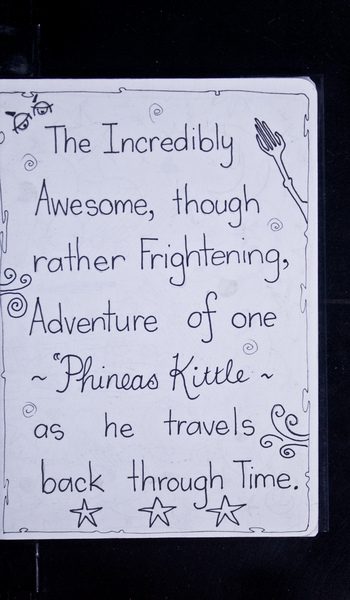 The Incredibly
Awesome, though
rather Frightening,
Adventure of one
~ "Phineas Kittle ~
as he travels
back through Time.